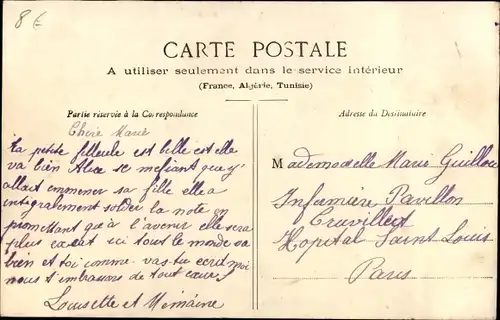 8 €
CARTE POSTALE
A utiliser seulement dans le service intérieur
(France, Algérie, Tunisie)
Partie réservée à la Correspondance
Adresse du Destinataire
Chère Marie
ta petite filleule est belle est elle
va bien Alice se méfiant que j'
allait emmener sa fille elle a
intégralement solder la note en
promettant que à l'avenir elle sera
plus exact ici tous le monde va
bien et toi comme vas-tu ecrit moi
nous t'embrassons de tout cœur
Louisette et
Mademoiselle Marie Guillou
Infirmière Pavillon
Hopital Saint Louis
Paris